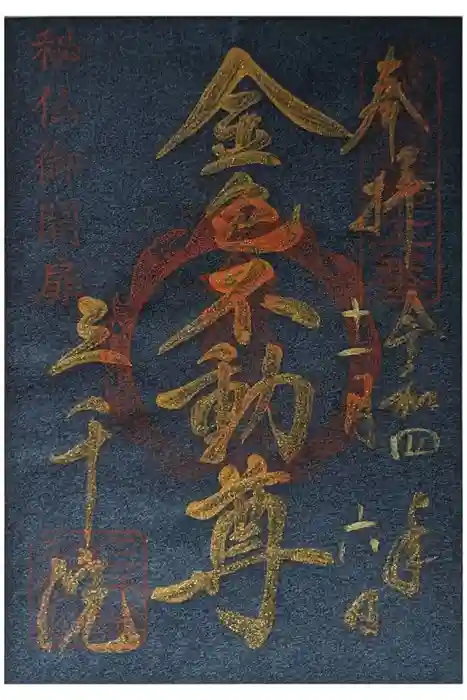 奉拝
令和四年
十一月十六日
金色不動尊
三千院
秘仏御開扉